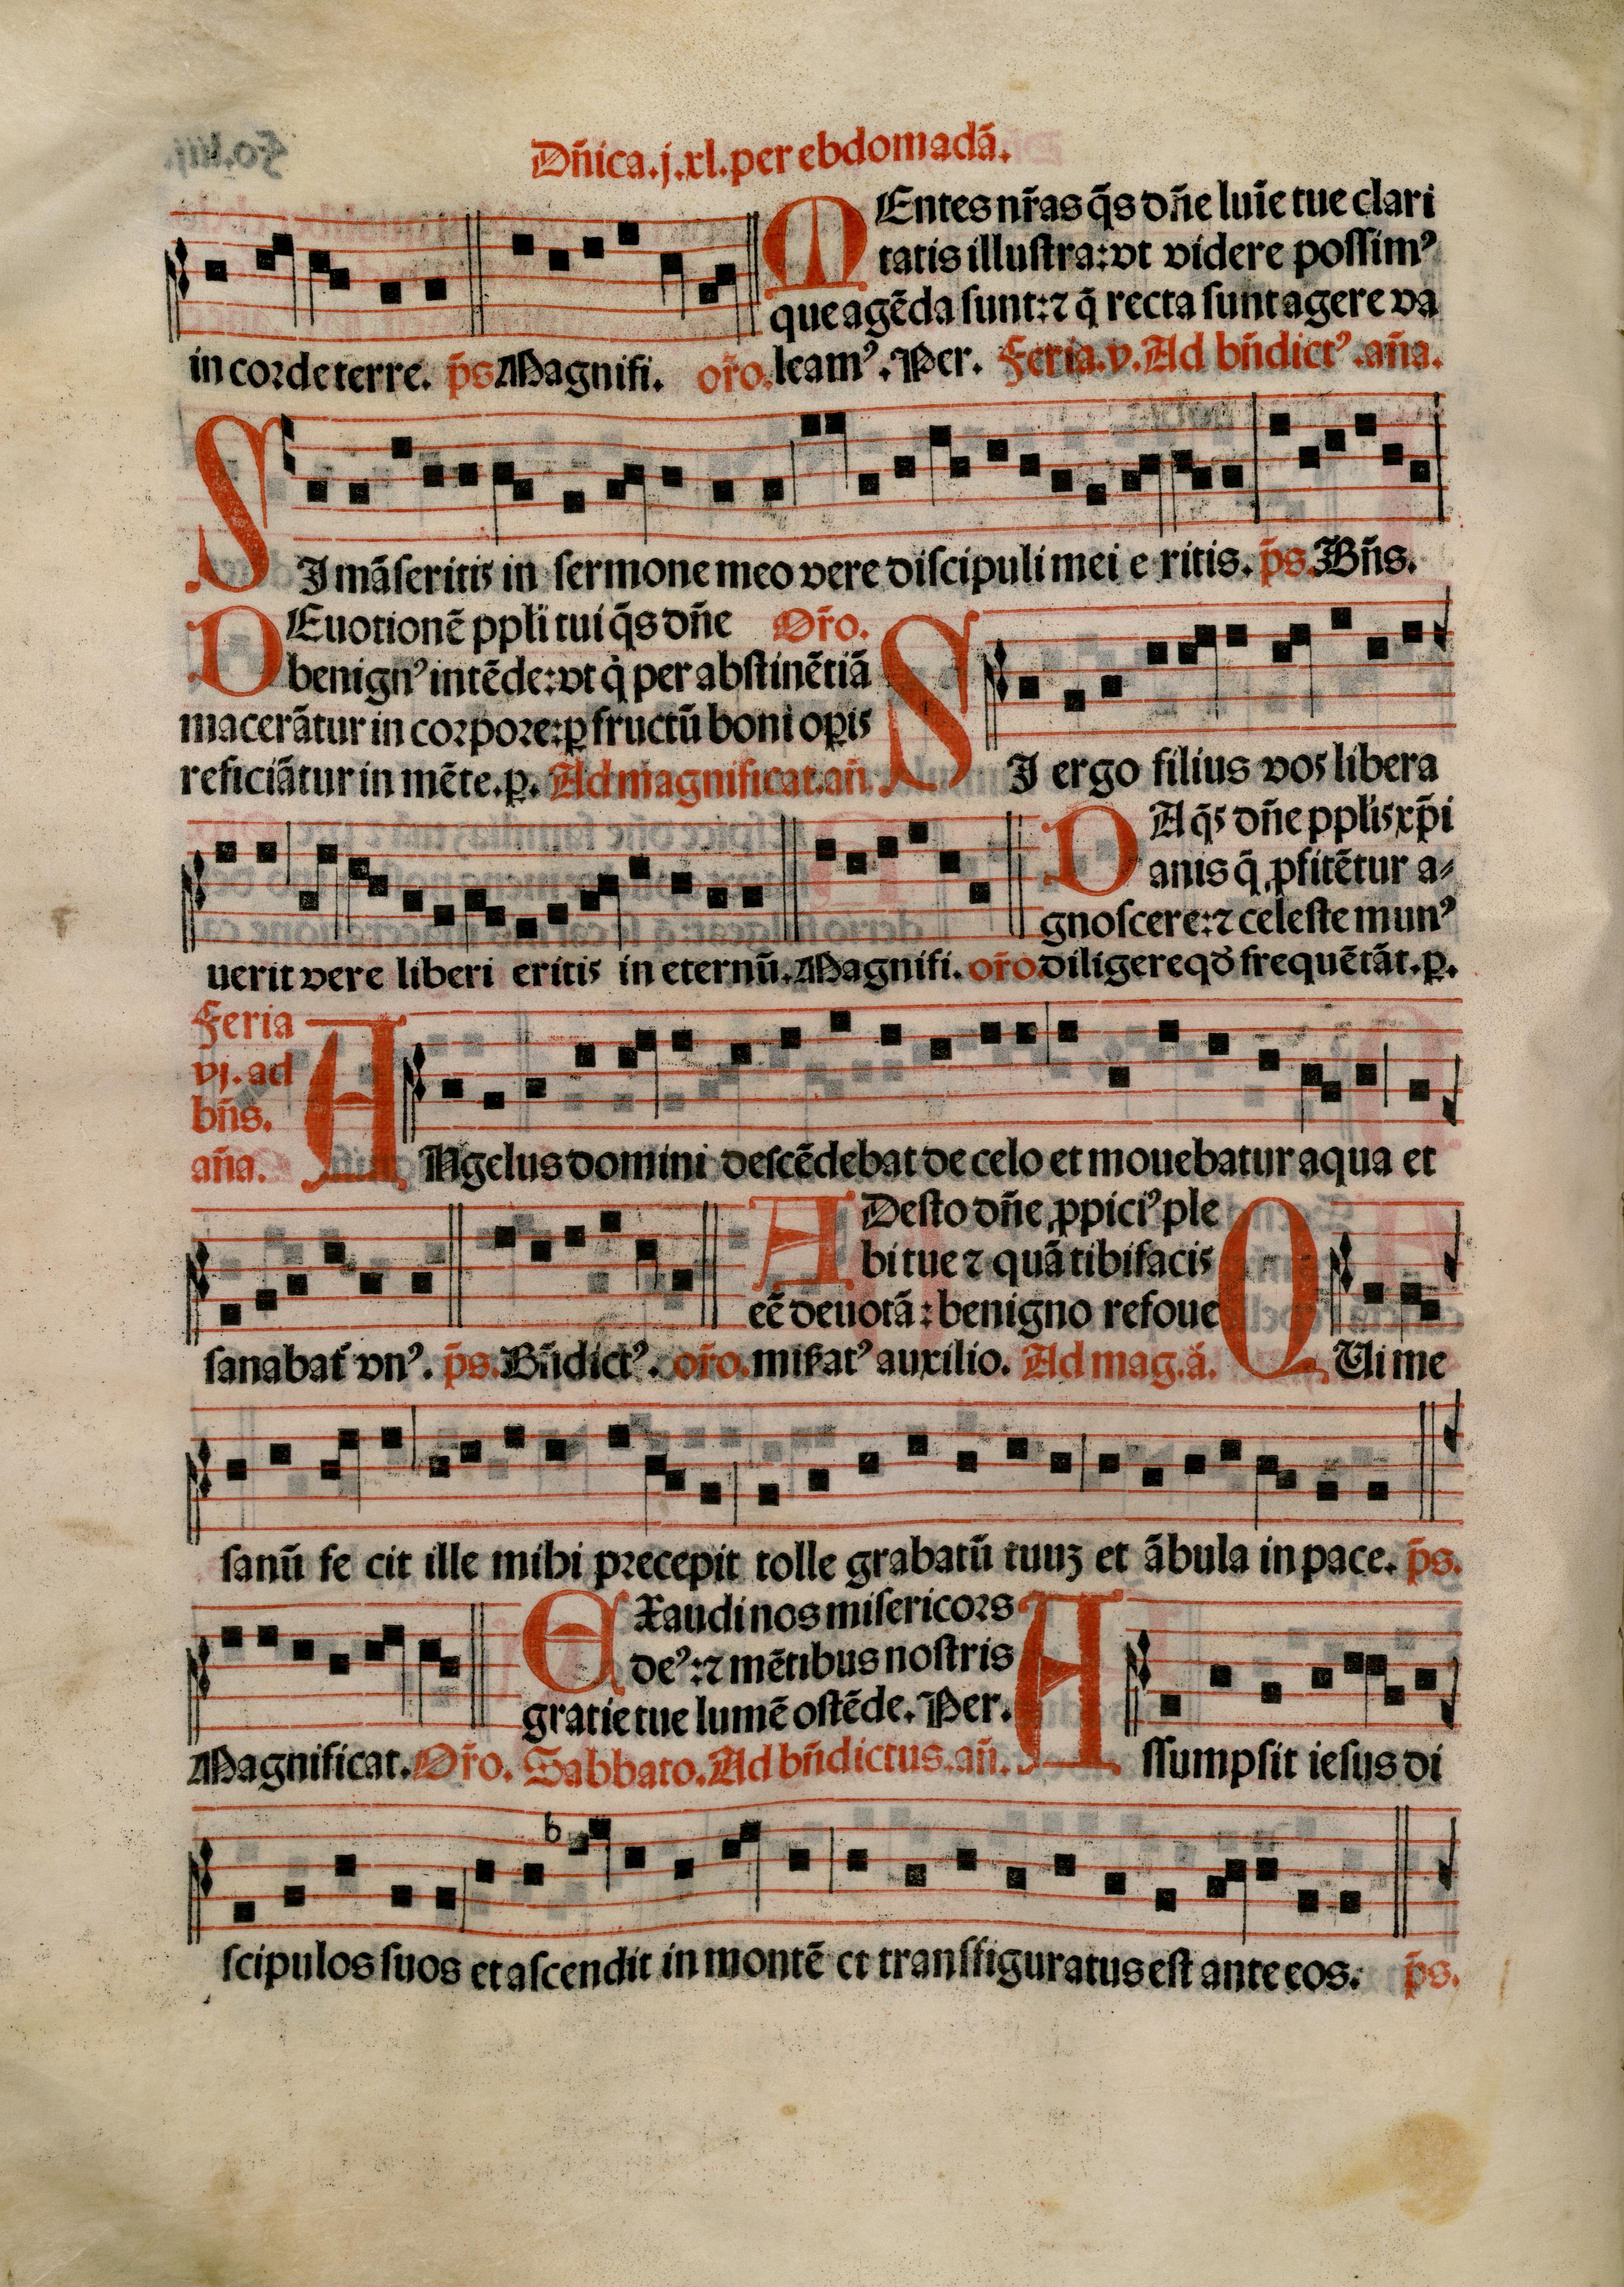 Dñica.j.xl.per ebdomadã.
MEntes nr̃as q̃s dñe luĩe tue clari
tatis illustra:vt videre possimꝰ
que agẽda sunt:⁊ q̃ recta sunt agere va
in corde terre. p̃s Magnifi. or̃o. leamꝰ. Per. Feria.v. Ad bñdictꝰ.aña.
SI mãseritis in sermone meo vere discipuli mei e ritis. p̃s. Bñs.
DEuotionẽ ppl̃i tui q̃s dñe Or̃o.
benignꝰ intẽde:vt q̇ per abstinẽtiã
macerãtur in corpore:ꝑ fructũ boni oꝑis
reficiãtur in mẽte.ꝑ. Ad magnificat.añ
SI ergo filius vos libera
DA q̃s dñe ppl̃is xp̃i
anis q̃ ꝓfitẽtur a-
gnoscere:⁊ celeste munꝰ
uerit vere liberi eritis in eternũ. Magnifi. or̃o. diligere qḋ frequẽtãt.ꝑ.
Feria
vj. ad
bñs.
aña.
ANgelus domini descẽdebat de celo et mouebatur aqua et
ADesto dñe ꝓpiciꝰ ple
bi tue ⁊ quã tibi facis
eẽ deuotã: benigno refoue
sanabat᷑ vnꝰ. p̃s. Bñdictꝰ. or̃o. miẜatꝰ auxilio. Ad mag.ã. QUi me
sanũ fe cit ille mihi precepit tolle grabatũ tuuꝫ et ãbula in pace. p̃s.
EXaudi nos misericors
deꝰ:⁊ mẽtibus nostris
gratie tue lumẽ ostẽde. Per.
Magnificat. Or̃o. Sabbato. Ad bñdictus.añ. Assumpsit iesus di
scipulos suos et ascendit in montẽ et transfiguratus est ante eos. p̃s.